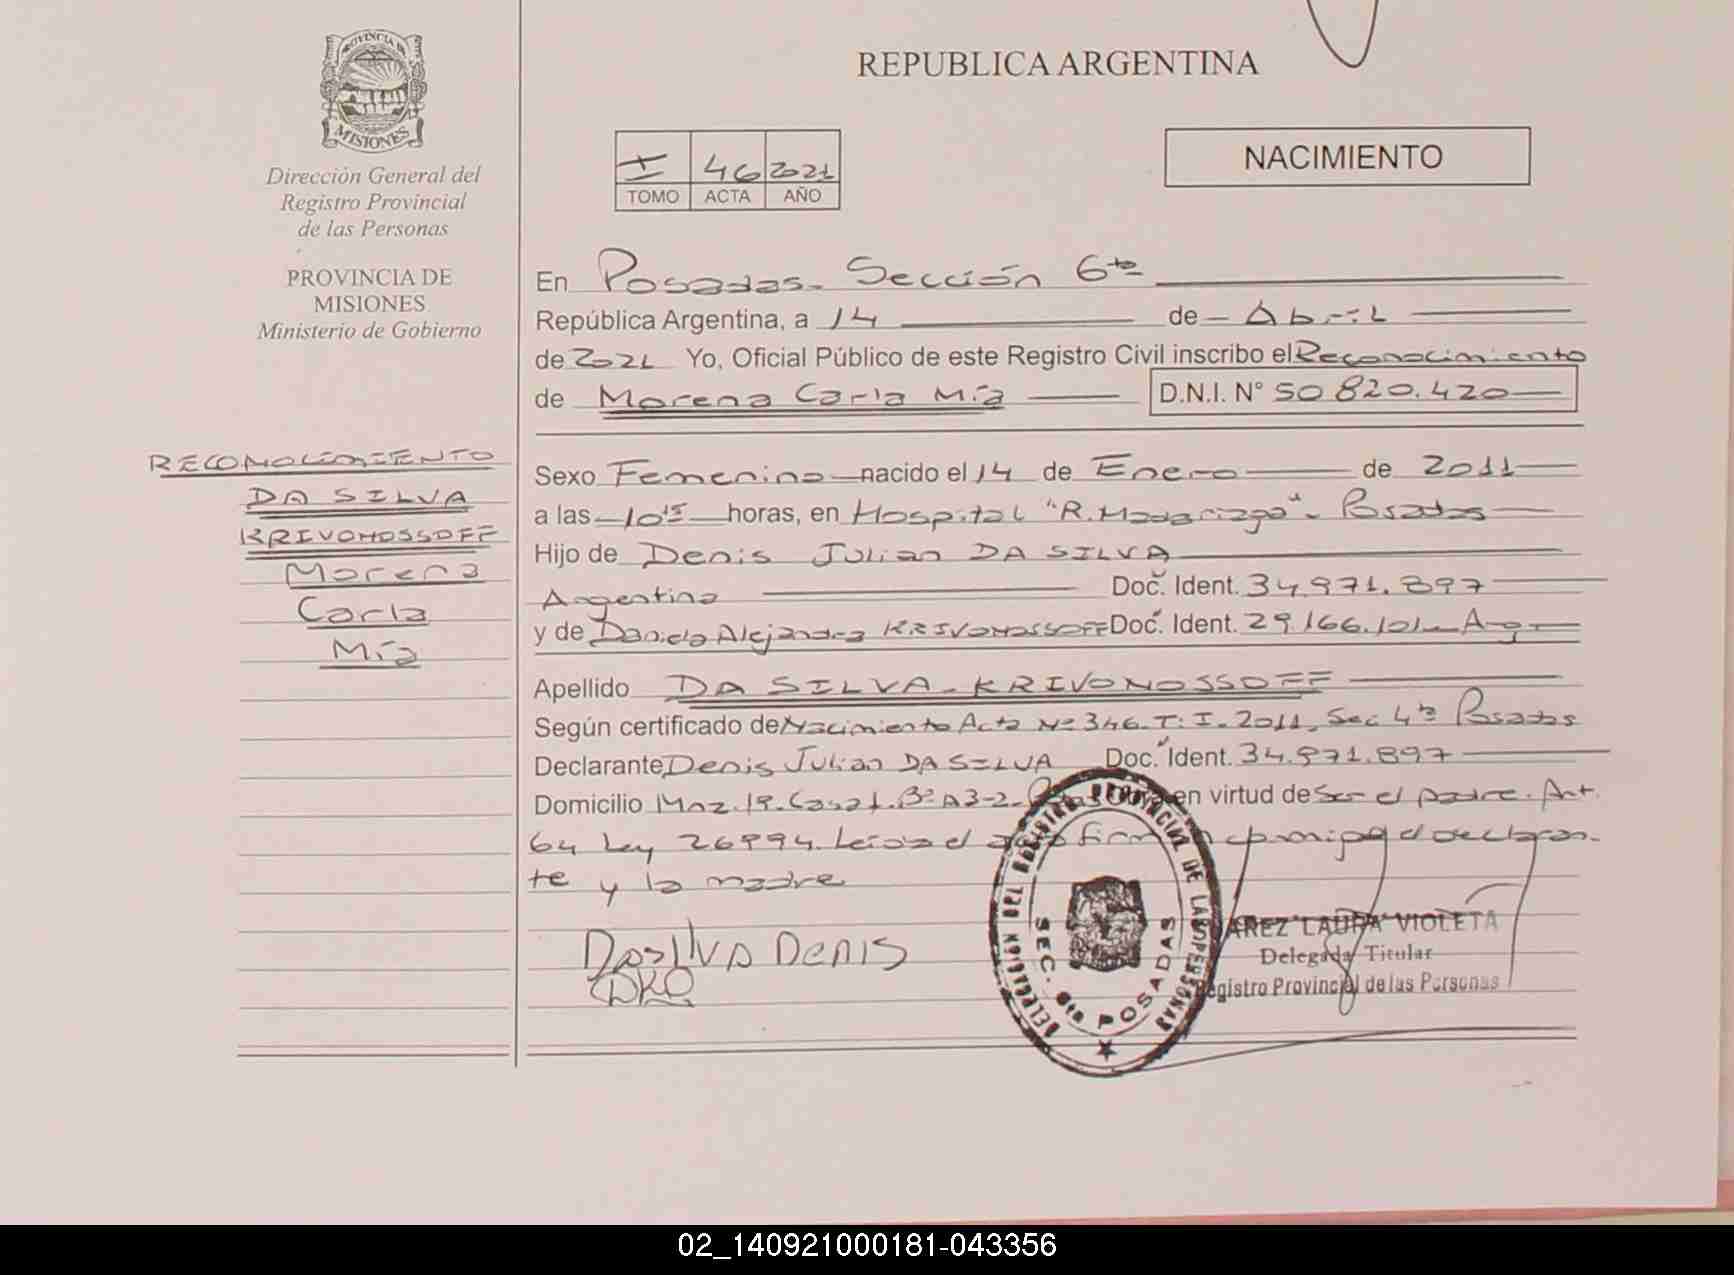 REPUBLICA ARGENTINA
PROVINCIA DE
MISIONES
Dirección General del
Registro Provincial
de las Personas
PROVINCIA DE
MISIONES
Ministerio de Gobierno
RECONOCIMIENTO
DA SILVA
KRIVONOSSOFF
Morena
Carla
Mía
I 46 2021
TOMO ACTA AÑO
NACIMIENTO
En Posadas - Sección 6ta
República Argentina, a 14 de Abril
de 2021 Yo, Oficial Público de este Registro Civil inscribo el Reconocimiento
de Morena Carla Mía D.N.I. N° 50 820.420
Sexo Femenino nacido el 14 de Enero de 2011
a las 10 15 horas, en Hospital "R. Madariaga" - Posadas
Hijo de Denis Julian DA SILVA
Argentina Doc. Ident. 34.971.897
y de Daniela Alejandra KRIVONOSSOFF Doc. Ident. 29.166.101 - Arg
Apellido DA SILVA - KRIVONOSSOFF
Según certificado de Nacimiento Acta N° 346. T: I. 2011. Sec 4ta Posadas
Declarante Denis Julian DA SILVA Doc. Ident. 34.971.897
Domicilio Mnz. 19. Casa 1. B° A3-2. en virtud de Ser el padre. Art.
64 Ley 26994. Leída el firman el declaran-
te y la madre
Dasilva Denis
DELEGACION DEL REGISTRO PROVINCIAL DE LAS PERSONAS
SEC. 6ta POSADAS
LAURA VIOLETA
Delegada Titular
Registro Provincial de las Personas
02_140921000181-043356